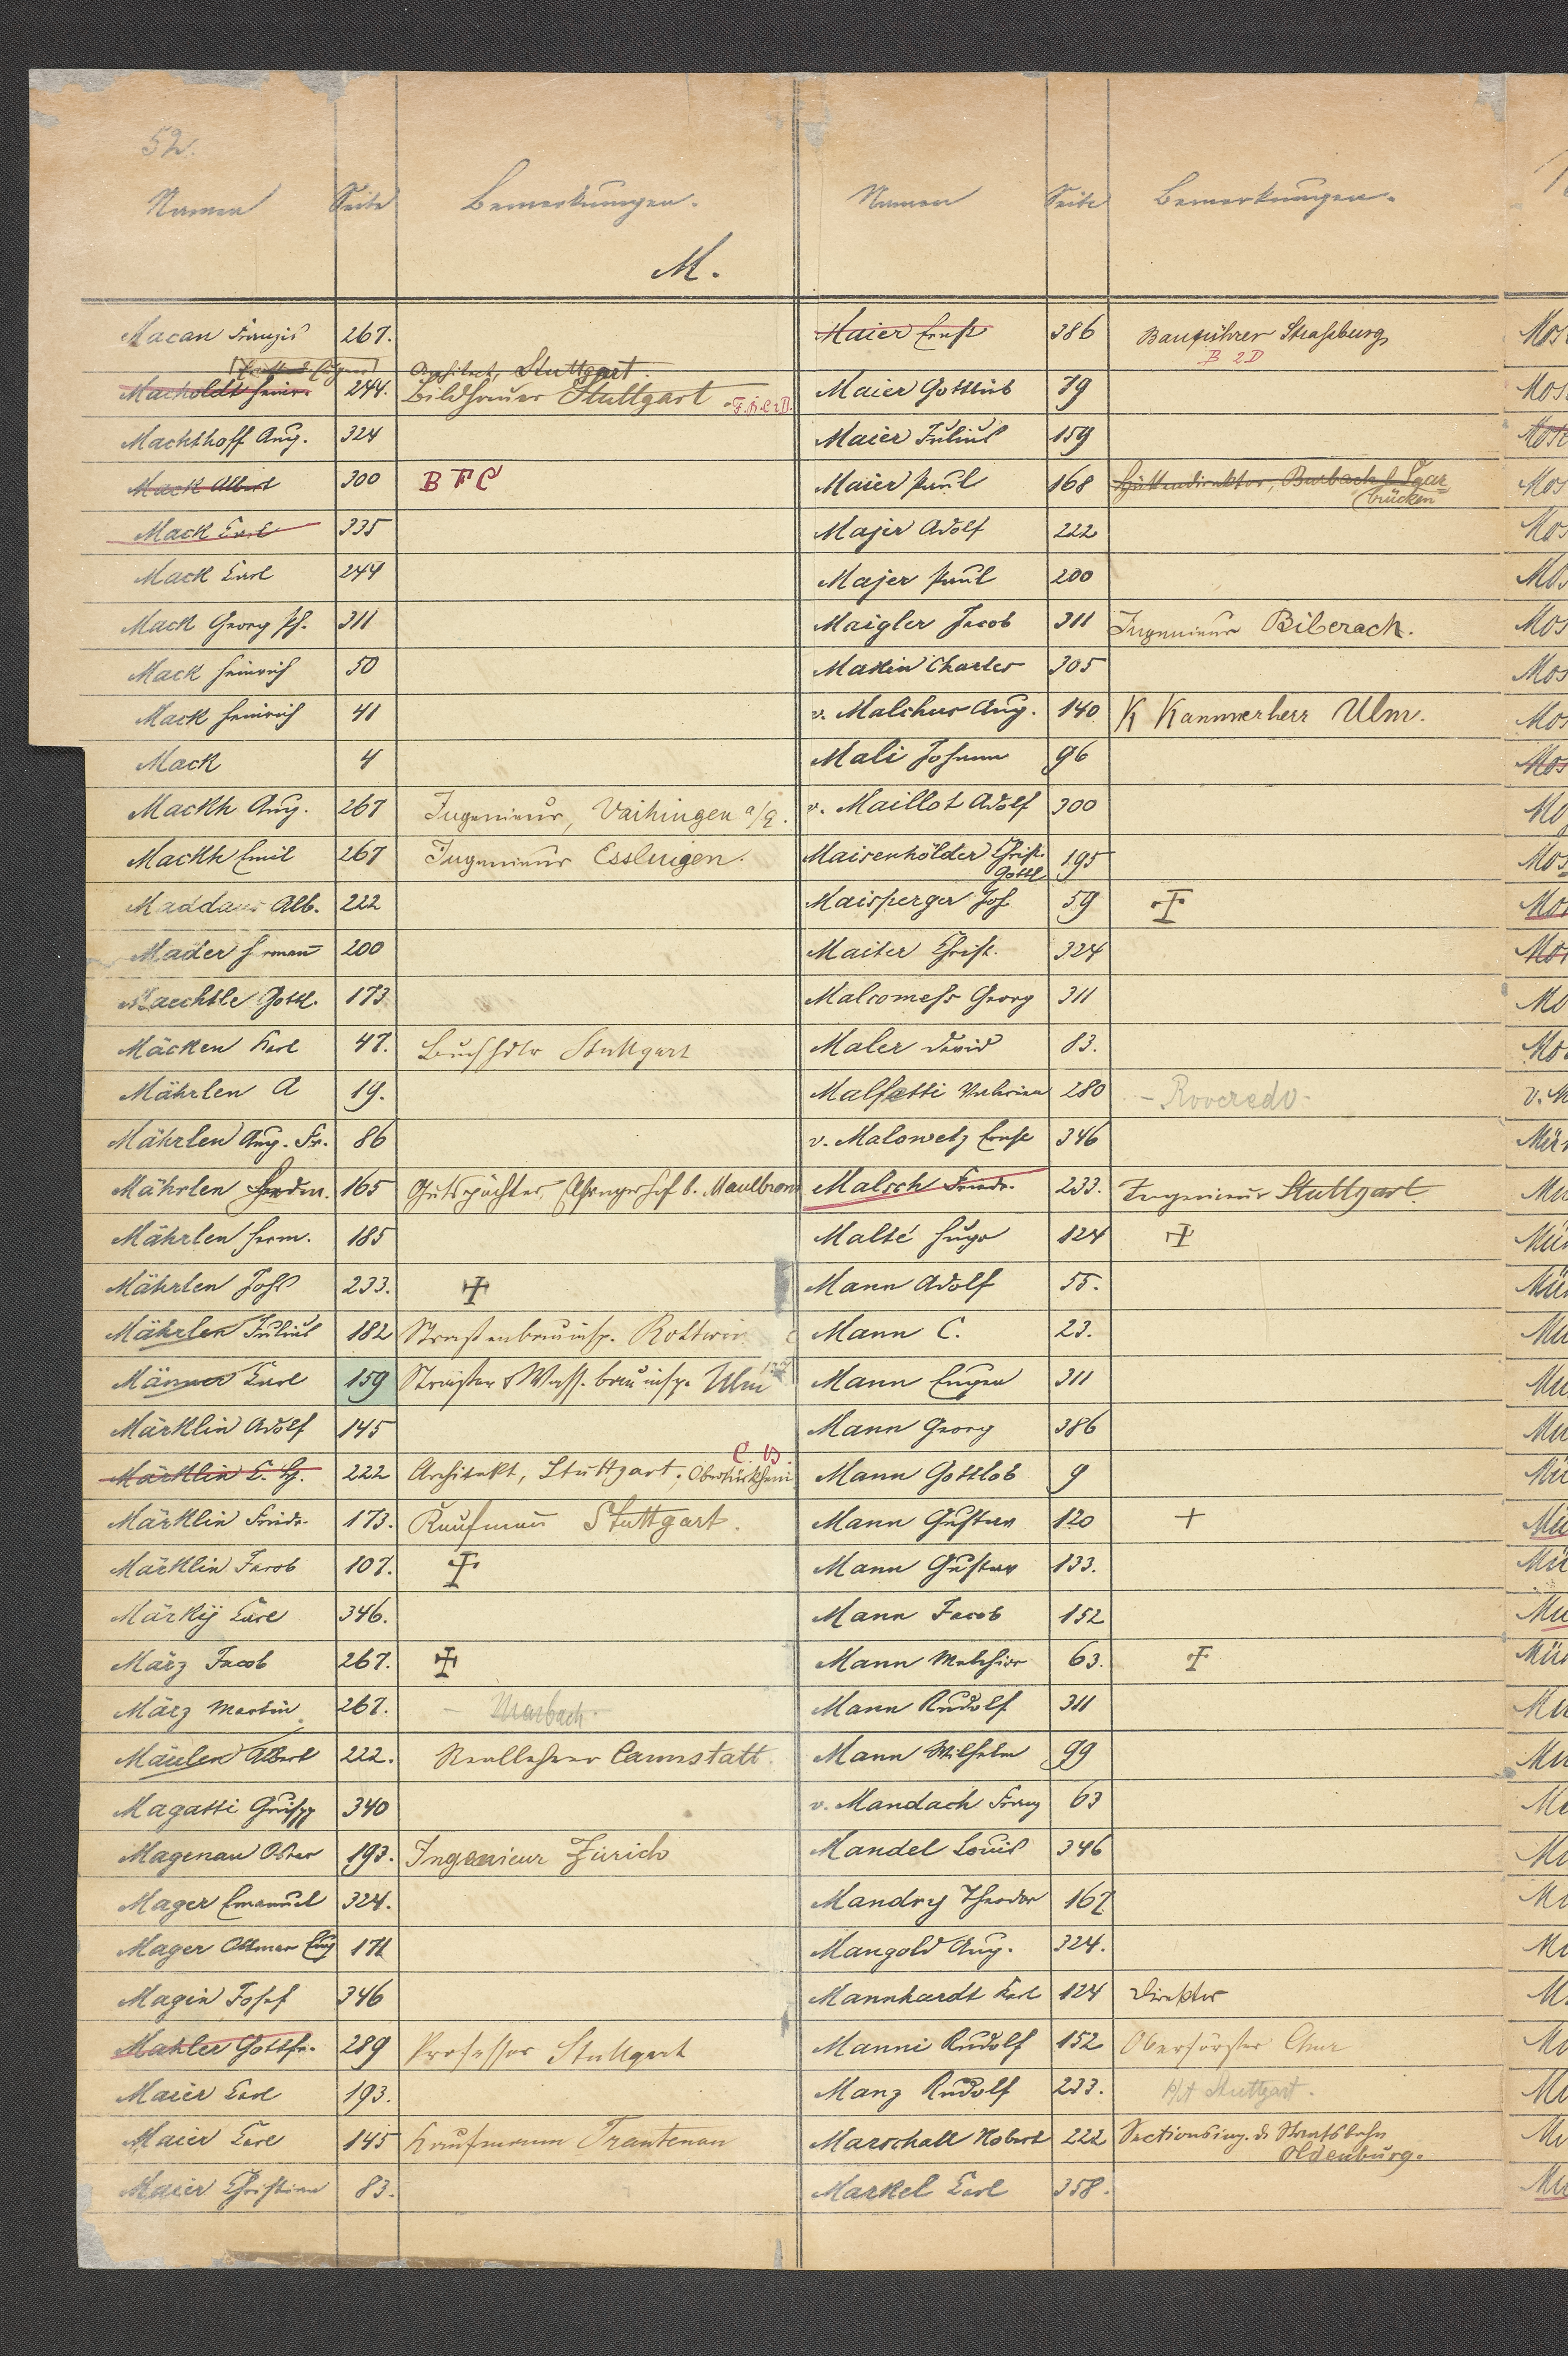 52.
Namen Seite Bemerkungen.
M.
Macan Franzis 267.
Architect, Stuttgart.
Macholdt Heinr. 244. Bildhauer Stuttgart
Machthoff Aug. 324
Mack Albert 300 B F C
Mack Carl 335
Mack Carl 244
Mack Georg Ph. 311
Mack Heinrich 50
Mack Heinrich 41
Mack 4
Mackh Aug. 267 Ingenieur, Vaihingen a/E.
Mackh Emil 267 Ingenieur Esslingen.
Maddaus Alb. 222
Mader Hermañ 200
Maechtle Gottl. 173
Mäcken Karl 47. Buchhdlr Stuttgart
Mährlen A 19.
Mährlen Aug. Fr. 86
Mährlen Ferdin. 165 Gutspächter, Elfingerhof b. Maulbronn
Mährlen Herm. 185
Mährlen Johs 233.
Mährlen Julius 182 Strassenbauinsp. Rottweil
Männer Carl 159 Strassen & Wass. bauinsp. Ulm
Märklin Adolf 145
C. B.
Märklin E. Hg. 222 Architekt, Stuttgart, Obertürkheim
Märklin Friedr. 173. Kaufmañ Stuttgart.
Märklin Jacob 107.
Märkÿ Carl 346.
März Jacob 267.
März Martin 267. – Marbach.
Mäulen Albert 222. Reallehrer Cannstatt.
Magatti Guisepp 340
Magenau Oskar 193. Ingenieur Zürich
Mager Emanuel 324.
Mager Ottmar Eug 171
Magin Josef 346
Mahler Gottfr. 289 Professor Stuttgart
Maier Carl 193.
Maier Carl 145 Kaufmann Trautenau
Maier Christian 83.
Namen Seite Bemerkungen.
Maier Ernst 386 Bauführer Strassburg
B 2D
Maier Gottlieb 79
Maier Julius 159
Maier Paul 168 Hüttendirektor, Burbach b. Saar
brücken
Majer Adolf 222
Majer Paul 200
Maigler Jacob 311 Ingenieur Biberach.
Makin Charles 305
v. Malchus Aug. 140 K Kammerherr Ulm.
Mali Johann 96
v. Maillot Adolf 300
Maisenhölder Christ. 195
Gottl
Maisperger Jos 59
Maiter Christ. 324
Malcomess Georg 311
Maler David 83.
Malfatti Valerian 280 – Roveredo.
v. Malowetz Ernst 346
Malsch Friedr. 233. Ingenieur Stuttgart.
Malté Hugo 124
Mann Adolf 55.
Mann C. 23.
Mann Eugen 311
Mann Georg 386
Mann Gottlob 9
Mann Gustav 120 +
Mann Gustav 133.
Mann Jacob 152
Mann Melchior 63.
Mann Rudolf 311
Mann Wilhelm 99
v. Mandach Franz 63
Mandel Louis 346
Mandry Theodor 167
Mangold Aug. 324.
Mannhardt Karl 124 Direktor
Manni Rudolf 152 Oberförster Chur
Manz Rudolf 233. Stuttgart.
Marschall Robert 222 Sectionsing. d. Staatsbahn
Oldenburg.
Markel Carl 358.